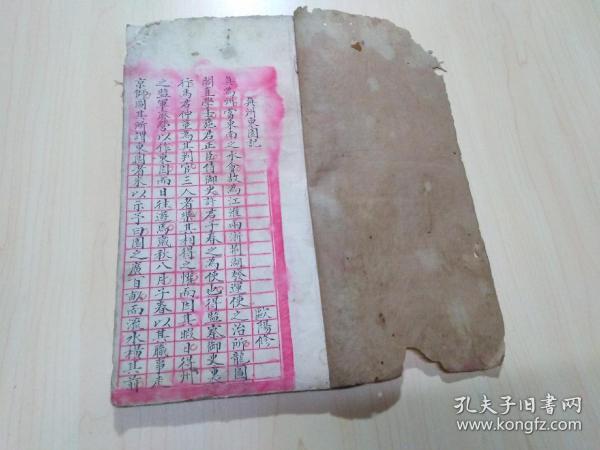 真州東園記
歐陽修
真為州當東南之水會故為江淮兩浙荊湖發運使之治所龍圖
閣直學士施君正臣侍御史許君子春之為使也得監察御史裏
行馬君仲塗為其判官三人者樂其相得之懽而因其暇日得州
之監軍廢營以作東園而日往遊焉歲秋八月子春以其職事走
京師圖其所謂東園者來以示予曰園之廣百畝而流水橫其前
孔夫子旧书网
www.kongfz.com